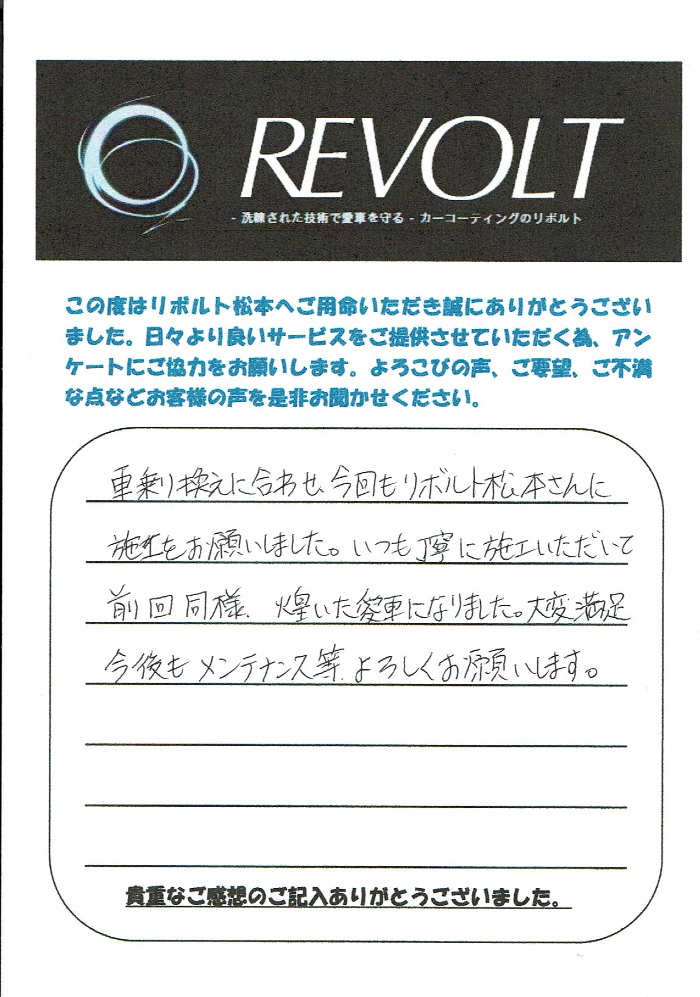 REVOLT
- 洗練された技術で愛車を守る - カーコーティングのリボルト
この度はリボルト松本へご用命いただき誠にありがとうござい
ました。日々より良いサービスをご提供させていただく為、アン
ケートにご協力をお願いします。よろこびの声、ご要望、ご不満
な点などお客様の声を是非お聞かせください。
車乗り換えに合わせ、今回もリボルト松本さんに
施工をお願いしました。いつも丁寧に施工いただいて
前回同様、煌いた愛車になりました。大変満足
今後もメンテナンス等、よろしくお願いします。
貴重なご感想のご記入ありがとうございました。